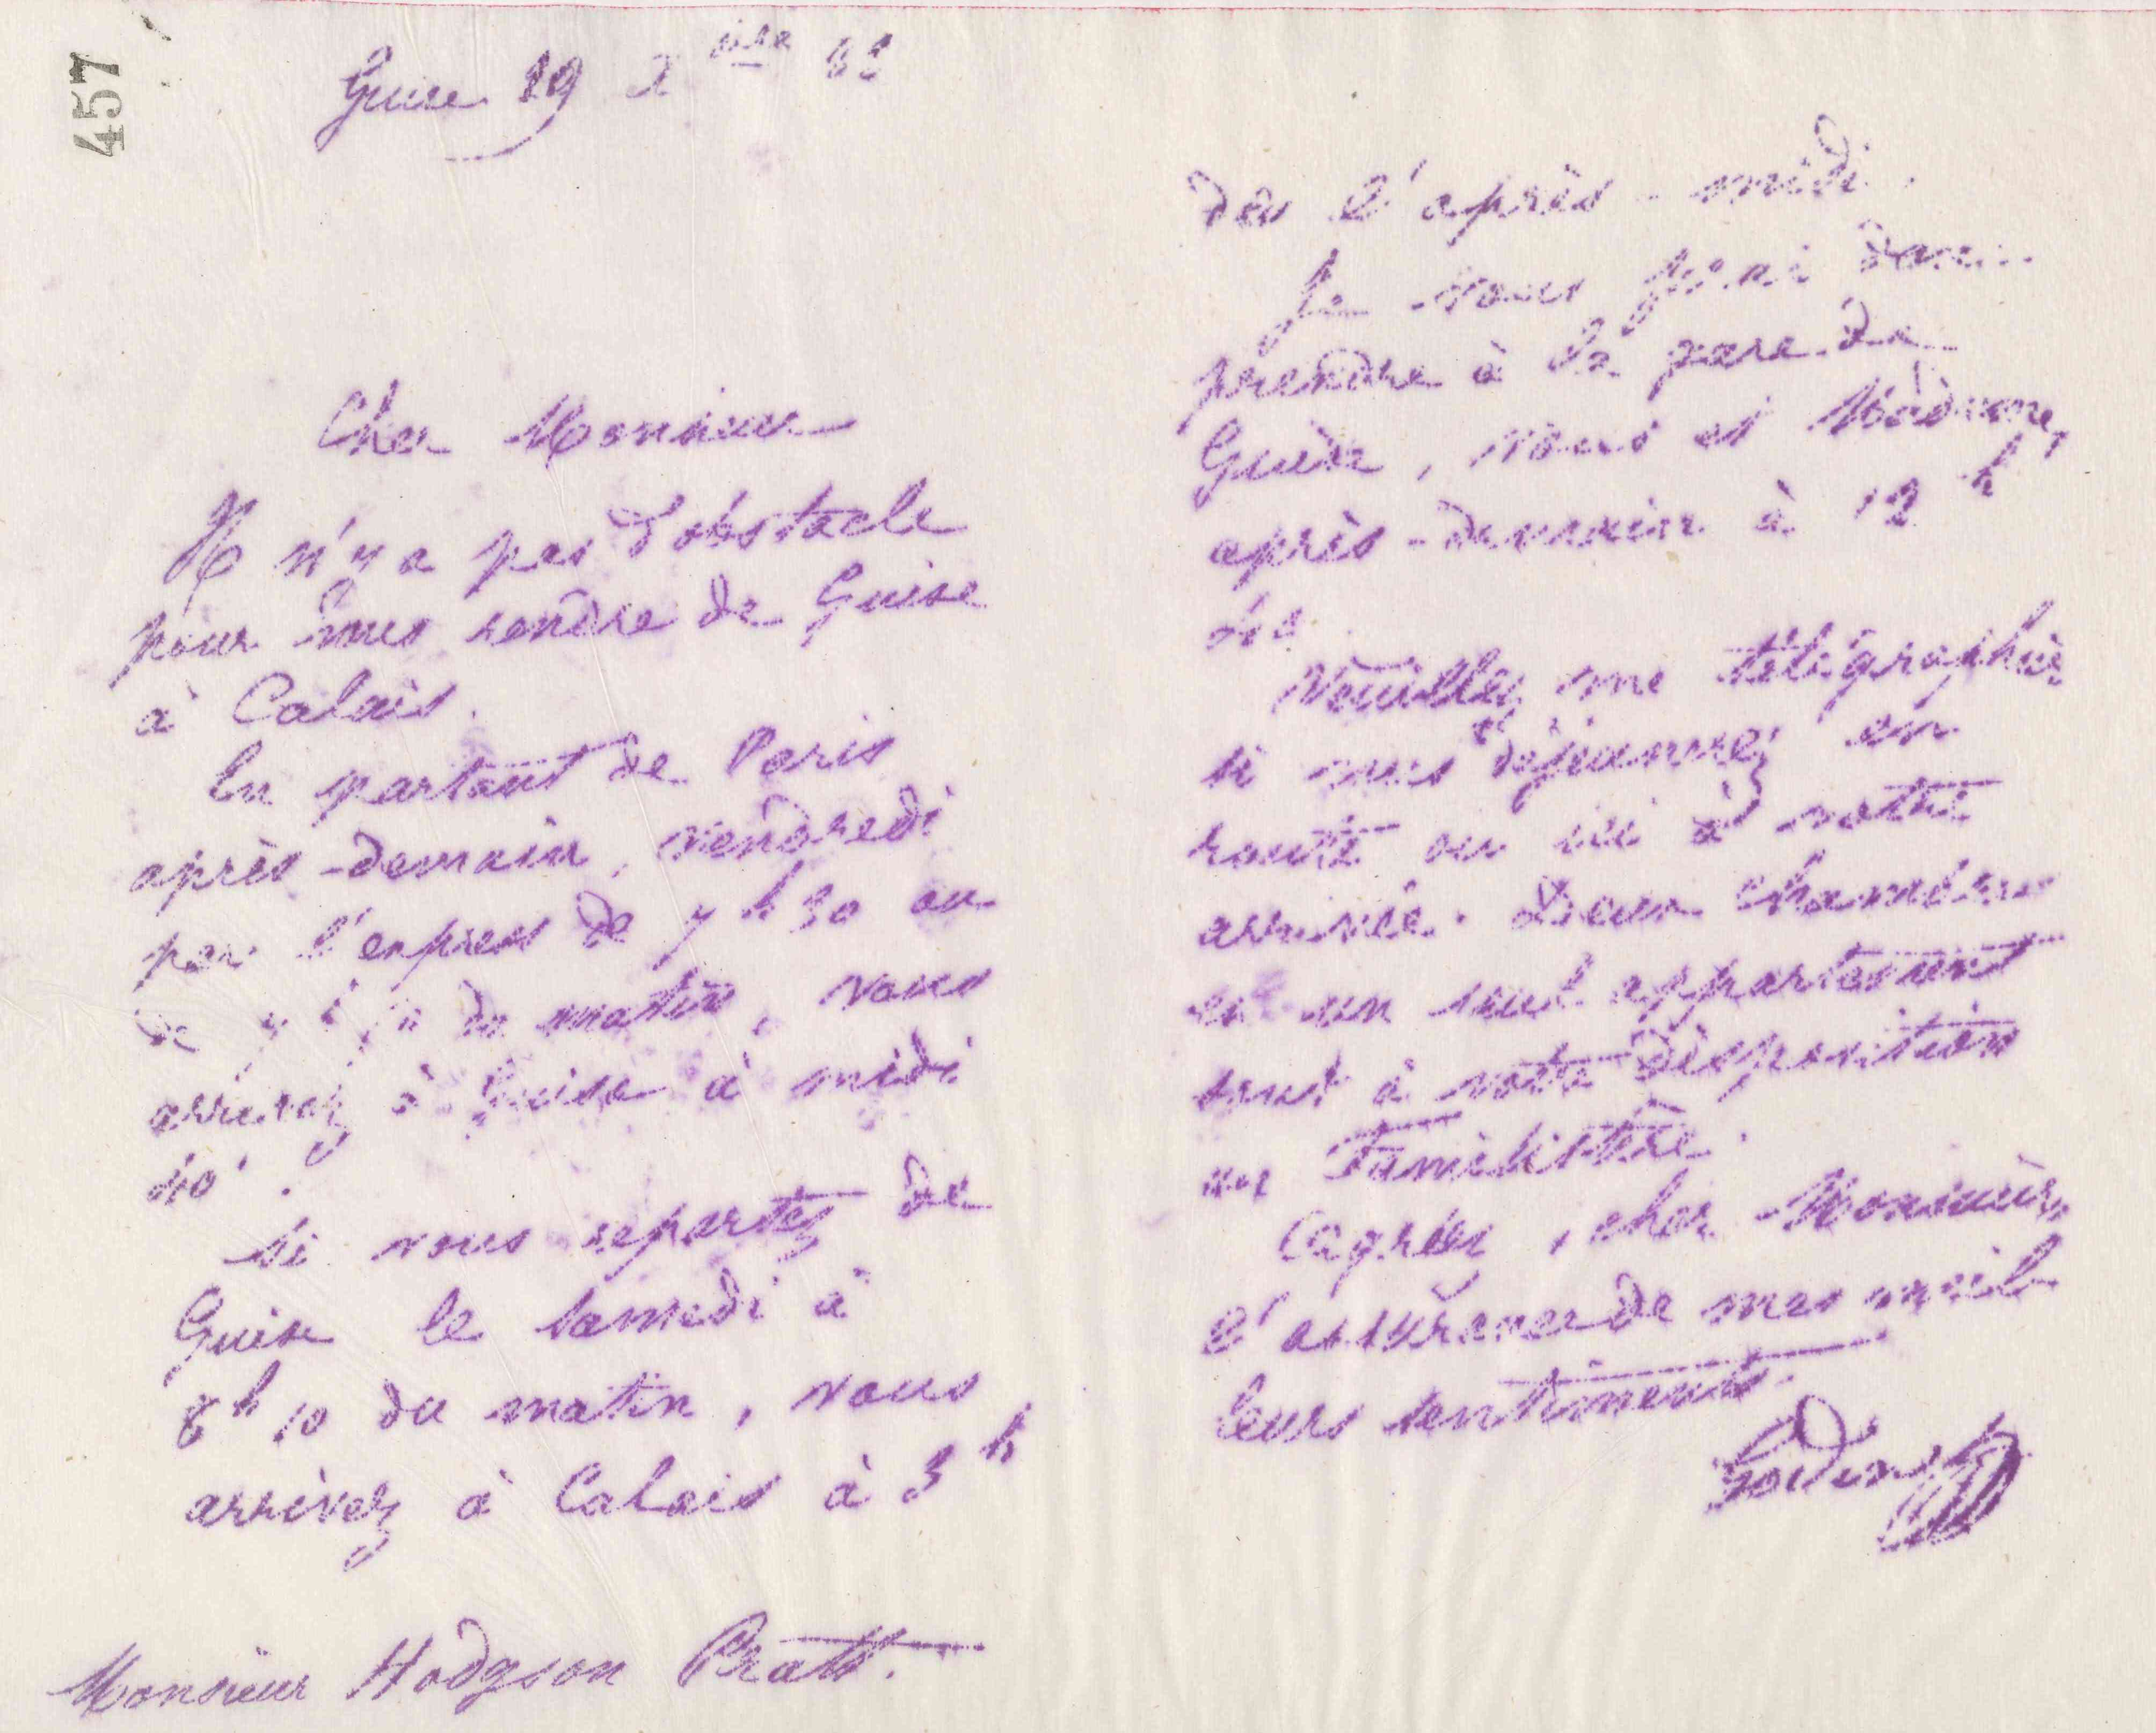 457
Guise 19 Xbre
Cher Monsieur
Il n'y a pas d'obstacle
pour vous rendre de Guise
à Calais.
En partant de Paris
après-demain, vendredi
par l'express de 7h30 ou
de du matin, vous
arrivez à Guise à midi
40'.
Si vous repartez de
Guise le samedi à
8h 10 du matin, vous
arrivez à Calais à 3h
Monsieur Hodgson Pratt.
de l'après-midi.
Je vous ferai donc
prendre à la gare de
Guise, vous et Madame,
après-demain à 12h
40
Veuillez me télégraphier
si vous déjeunerez en
route ou ici à votre
arrivée. Deux chambres
en un seul appartement
sont à votre disposition
au Familistère.
Agréez, cher Monsieur,
l'assurance de mes meil
leurs sentiments.
Godin